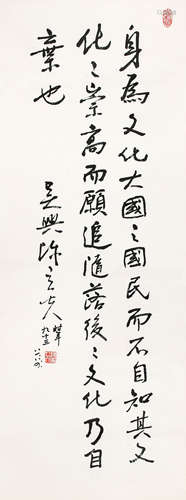 身為文化大國之國民而不自知其文
化之崇高而願追隨落後之文化乃自
棄也
吳興陳立夫
時年九十五